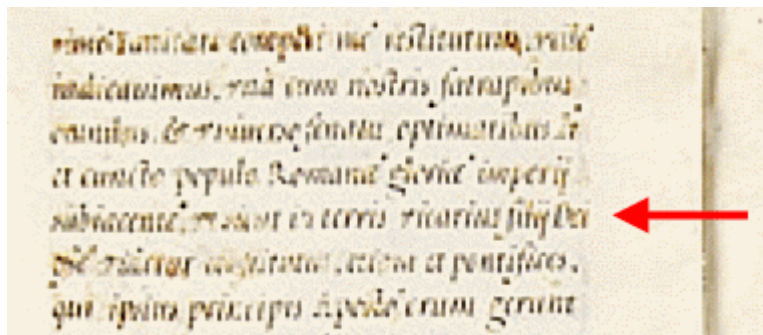 sanitati me restitutum, utile
iudicauimus, una cum nostris satrapibus
omnibus, & uniuerso senatu, optimatibus
et cuncto populo Romane glorie imperij
subiacente, ut sicut in terris uicarius filij Dei
uidetur constitutus, etiam et pontifices,
qui ipsius principis gerunt